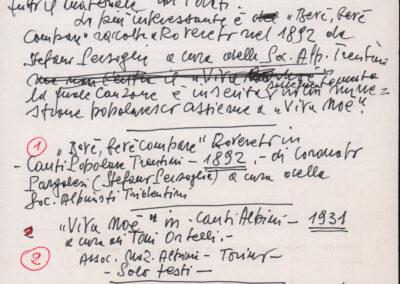 tutti il materiale
La più interessante è "Beré, beré
Compare" raccolta a Rovereto nel 1892 da
Stefano Persoglia a cura della Soc. Alp. Tridentini
la quale canzone è inserita in
strone popolaresco assieme a "Viva Noè".
1 "Beré, beré compare" Rovereto in
- Canti Popolare Trentini - 1892.- di Coronato
Pargolesi (Stefano Persoglia) a cura della
Soc. Alpinisti Tridentini
2 "Viva Noè" in - Canti Alpini - 1931
a cura di Toni Ortelli.-
Assoc. Naz. Alpini - Torino -
- Solo testi -